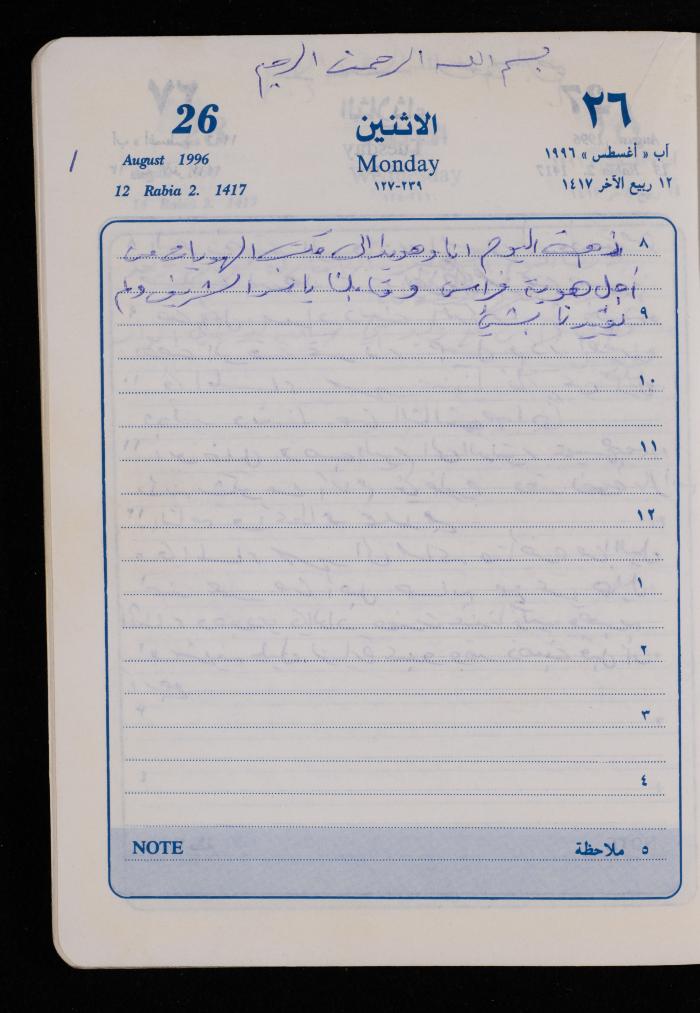 بسم الله الرحمن الرحيم
26 الاثنين ٢٦
August 1996 Monday آب « أغسطس » ١٩٩٦
12 Rabia 2. 1417 ١٢٧-٢٣٩ ١٢ ربيع الآخر ١٤١٧
٨ ذهبت اليوم انا وهويدا الى مكتب الهويات من
أجل هوية فراس وقابلنا ياسر الشريف ولم
٩ يفيدنا بشيئ
١٠
١١
١٢
١
٢
٣
٤
NOTE ٥ ملاحظة